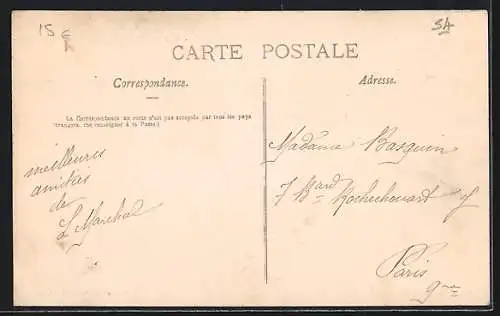 15 €
SA
CARTE POSTALE
Correspondance.
Adresse.
La Correspondance au verso n'est pas acceptée par tous les pays
étrangers. (Se renseigner à la Poste.)
meilleures
amitiés
de
L Marchal
Madame Basquin
7 Bard Rochechouart
Paris
9me